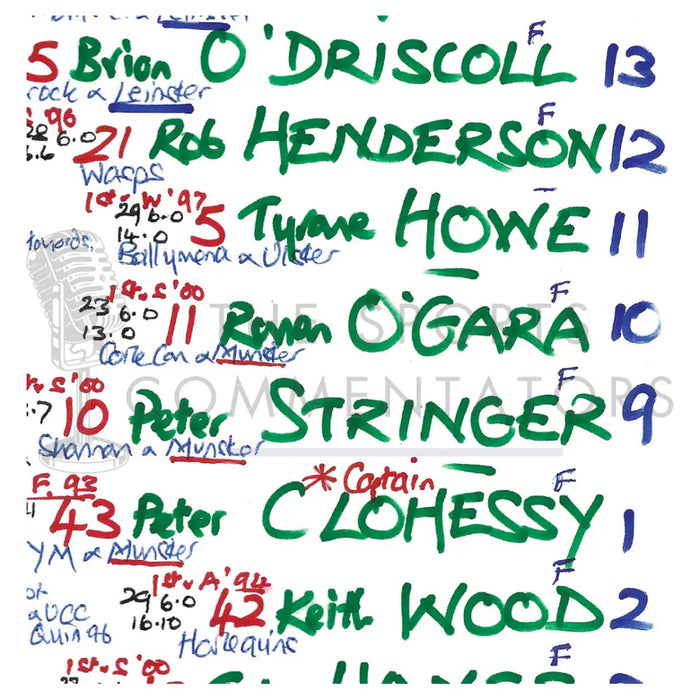 Leinster
5 Brian O'DRISCOLL F 13
rock & Leinster
'96
6.0 21 Rob HENDERSON F 12
6.6
Wasps
1st v W '97
29 6.0 5 Tyrone HOWE 11
14.0
towards. Ballymena & Ulster
1st v S '00
23 6.0 11 Ronan O'GARA F 10
13.0
Cork Con & Munster
THE SPORTS COMMENTATORS
v S '00
.7 10 Peter STRINGER F 9
Shannon & Munster
* Captain
F. 93
43 Peter CLOHESSY F 1
YM & Munster
1st v A '94
29 6.0 42 Keith WOOD F 2
16.10
& UCC
Quin 96
Harlequins
1st v S '00
F